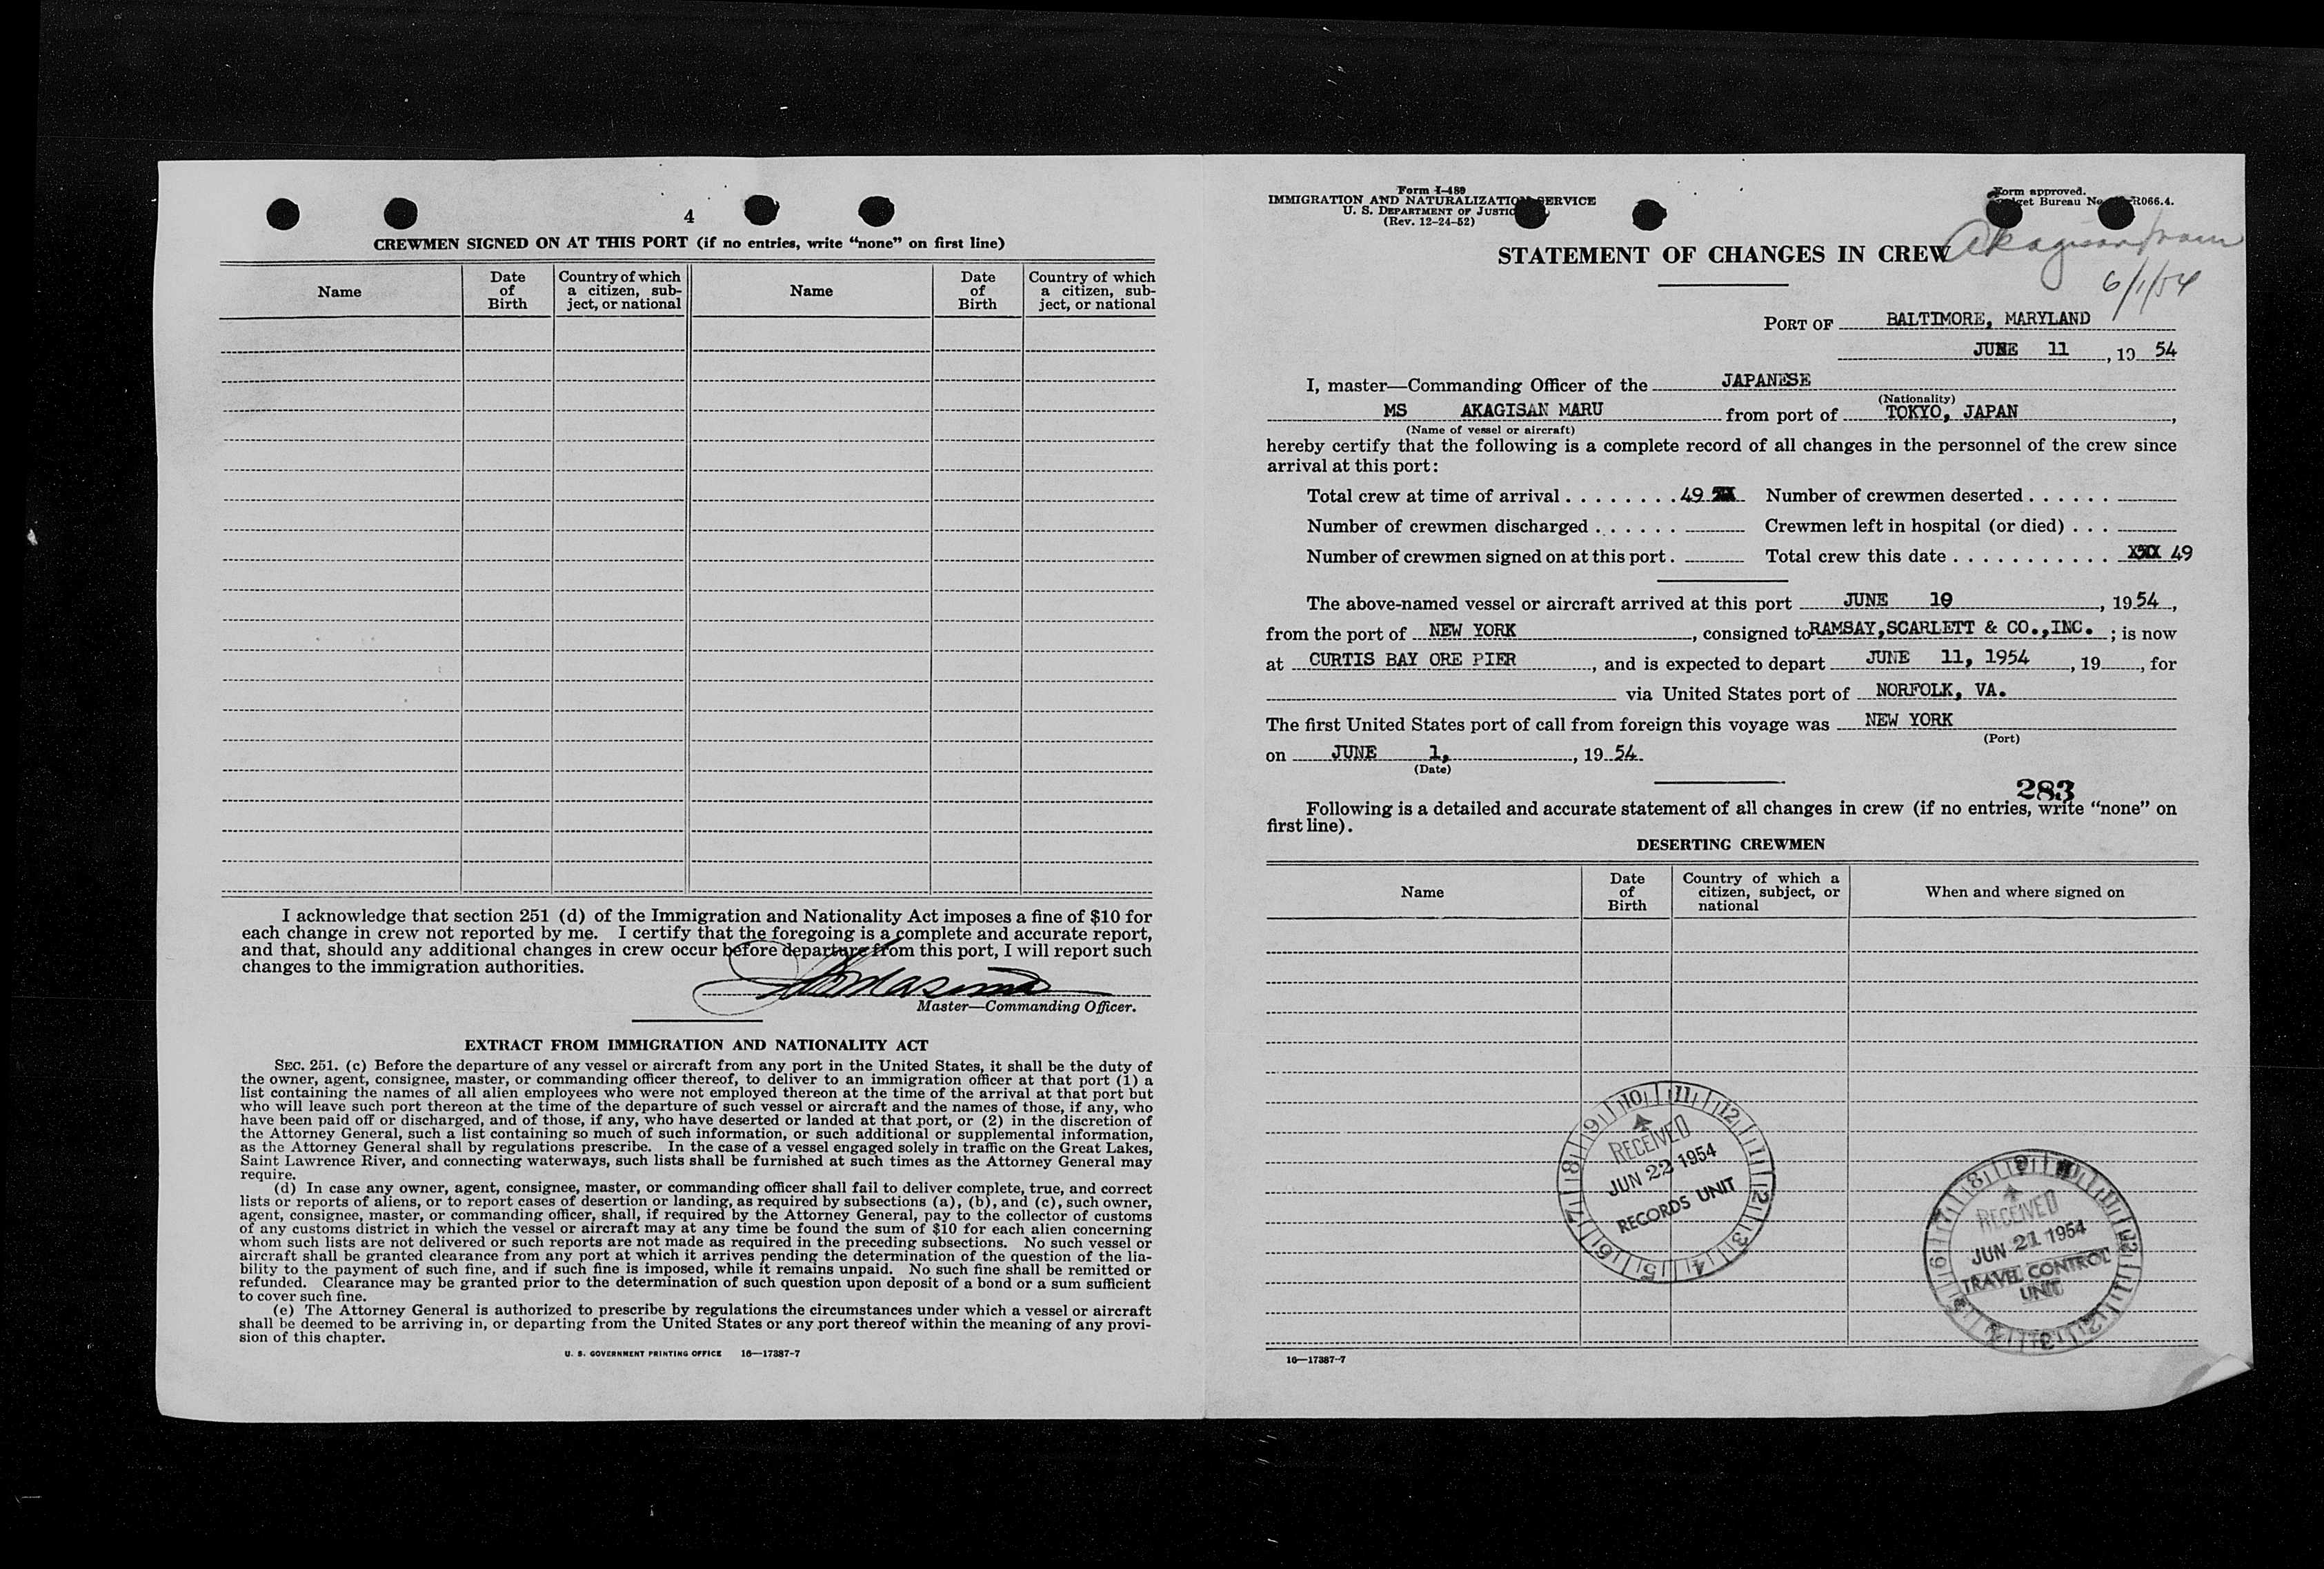 4
CREWMEN SIGNED ON AT THIS PORT (if no entries, write “none” on first line)
Name
Date of Birth
Country of which a citizen, subject, or national
Name
Date of Birth
Country of which a citizen, subject, or national
I acknowledge that section 251 (d) of the Immigration and Nationality Act imposes a fine of $10 for
each change in crew not reported by me. I certify that the foregoing is a complete and accurate report,
and that, should any additional changes in crew occur before departure from this port, I will report such
changes to the immigration authorities.
Master—Commanding Officer.
EXTRACT FROM IMMIGRATION AND NATIONALITY ACT
SEC. 251. (c) Before the departure of any vessel or aircraft from any port in the United States, it shall be the duty of
the owner, agent, consignee, master, or commanding officer thereof, to deliver to an immigration officer at that port (1) a
list containing the names of all alien employees who were not employed thereon at the time of the arrival at that port but
who will leave such port thereon at the time of the departure of such vessel or aircraft and the names of those, if any, who
have been paid off or discharged, and of those, if any, who have deserted or landed at that port, or (2) in the discretion of
the Attorney General, such a list containing so much of such information, or such additional or supplemental information,
as the Attorney General shall by regulations prescribe. In the case of a vessel engaged solely in traffic on the Great Lakes,
Saint Lawrence River, and connecting waterways, such lists shall be furnished at such times as the Attorney General may
require.
(d) In case any owner, agent, consignee, master, or commanding officer shall fail to deliver complete, true, and correct
lists or reports of aliens, or to report cases of desertion or landing, as required by subsections (a), (b), and (c), such owner,
agent, consignee, master, or commanding officer, shall, if required by the Attorney General, pay to the collector of customs
of any customs district in which the vessel or aircraft may at any time be found the sum of $10 for each alien concerning
whom such lists are not delivered or such reports are not made as required in the preceding subsections. No such vessel or
aircraft shall be granted clearance from any port at which it arrives pending the determination of the question of the lia-
bility to the payment of such fine, and if such fine is imposed, while it remains unpaid. No such fine shall be remitted or
refunded. Clearance may be granted prior to the determination of such question upon deposit of a bond or a sum sufficient
to cover such fine.
(e) The Attorney General is authorized to prescribe by regulations the circumstances under which a vessel or aircraft
shall be deemed to be arriving in, or departing from the United States or any port thereof within the meaning of any provi-
sion of this chapter.
U. S. GOVERNMENT PRINTING OFFICE 16—17387-7
Form I-489
IMMIGRATION AND NATURALIZATION SERVICE
U. S. DEPARTMENT OF JUSTICE
(Rev. 12-24-52)
Form approved.
Budget Bureau No. R066.4.
STATEMENT OF CHANGES IN CREW
6/1/54
PORT OF BALTIMORE, MARYLAND
JUNE 11, 19 54
I, master—Commanding Officer of the JAPANESE
(Nationality)
MS AKAGISAN MARU from port of TOKYO, JAPAN,
(Name of vessel or aircraft)
hereby certify that the following is a complete record of all changes in the personnel of the crew since
arrival at this port:
Total crew at time of arrival . . . . . . . . 49 Number of crewmen deserted . . . . . .
Number of crewmen discharged . . . . . . Crewmen left in hospital (or died) . . .
Number of crewmen signed on at this port . Total crew this date . . . . . . . . . . . . 49
The above-named vessel or aircraft arrived at this port JUNE 10, 19 54,
from the port of NEW YORK, consigned to RAMSAY,SCARLETT & CO.,INC. ; is now
at CURTIS BAY ORE PIER, and is expected to depart JUNE 11, 1954, 19 , for
via United States port of NORFOLK, VA.
The first United States port of call from foreign this voyage was NEW YORK
(Port)
on JUNE 1,, 19 54
(Date)
283
Following is a detailed and accurate statement of all changes in crew (if no entries, write “none” on
first line).
DESERTING CREWMEN
Name
Date of Birth
Country of which a citizen, subject, or national
When and where signed on
RECEIVED
JUN 22 1954
RECORDS UNIT
RECEIVED
JUN 21 1954
TRAVEL CONTROL
UNIT
16—17387-7